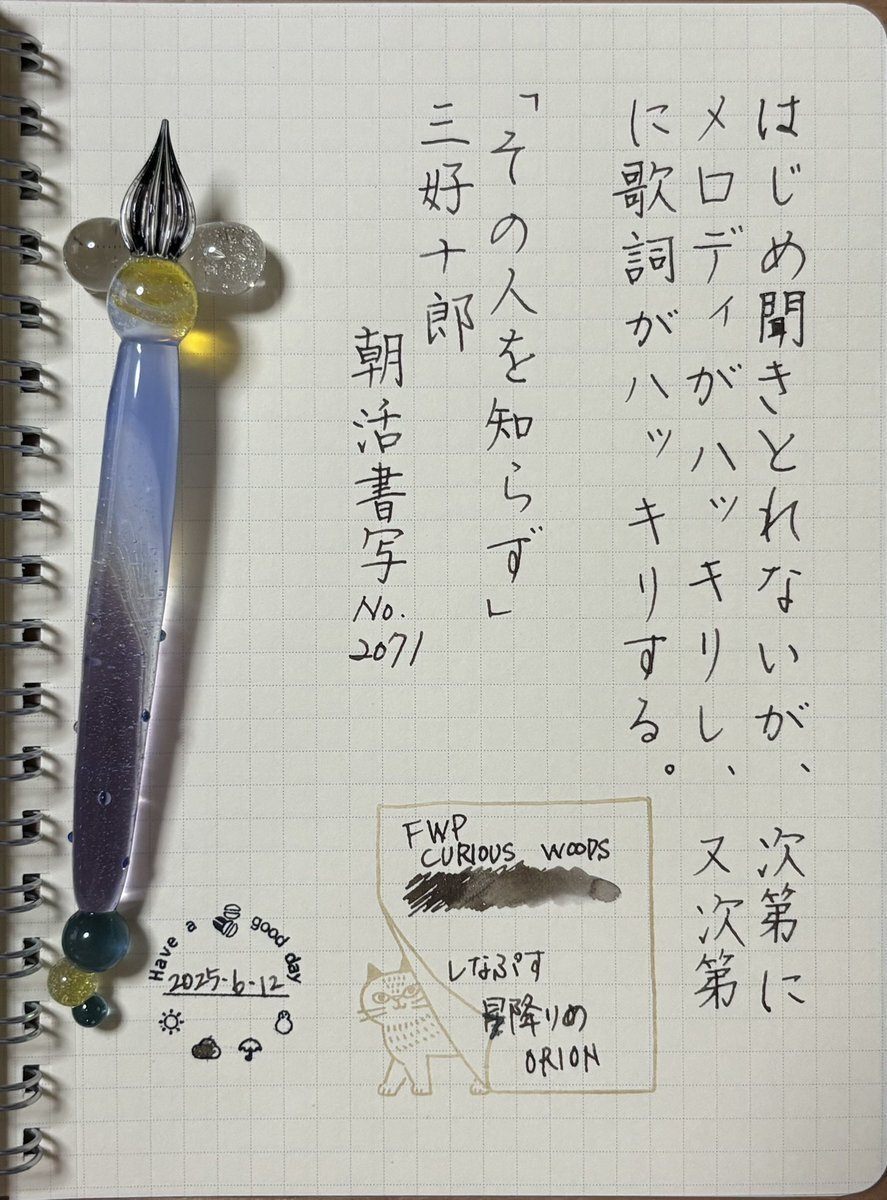 はじめ聞きとれないが、次第に
メロディがハッキリし、又次第
に歌詞がハッキリする。
「その人を知らず」
三好十郎
朝活書写
No.
2071
FWP
CURIOUS WOODS
しなぷす
ORION
Have a good day
2025-6-12